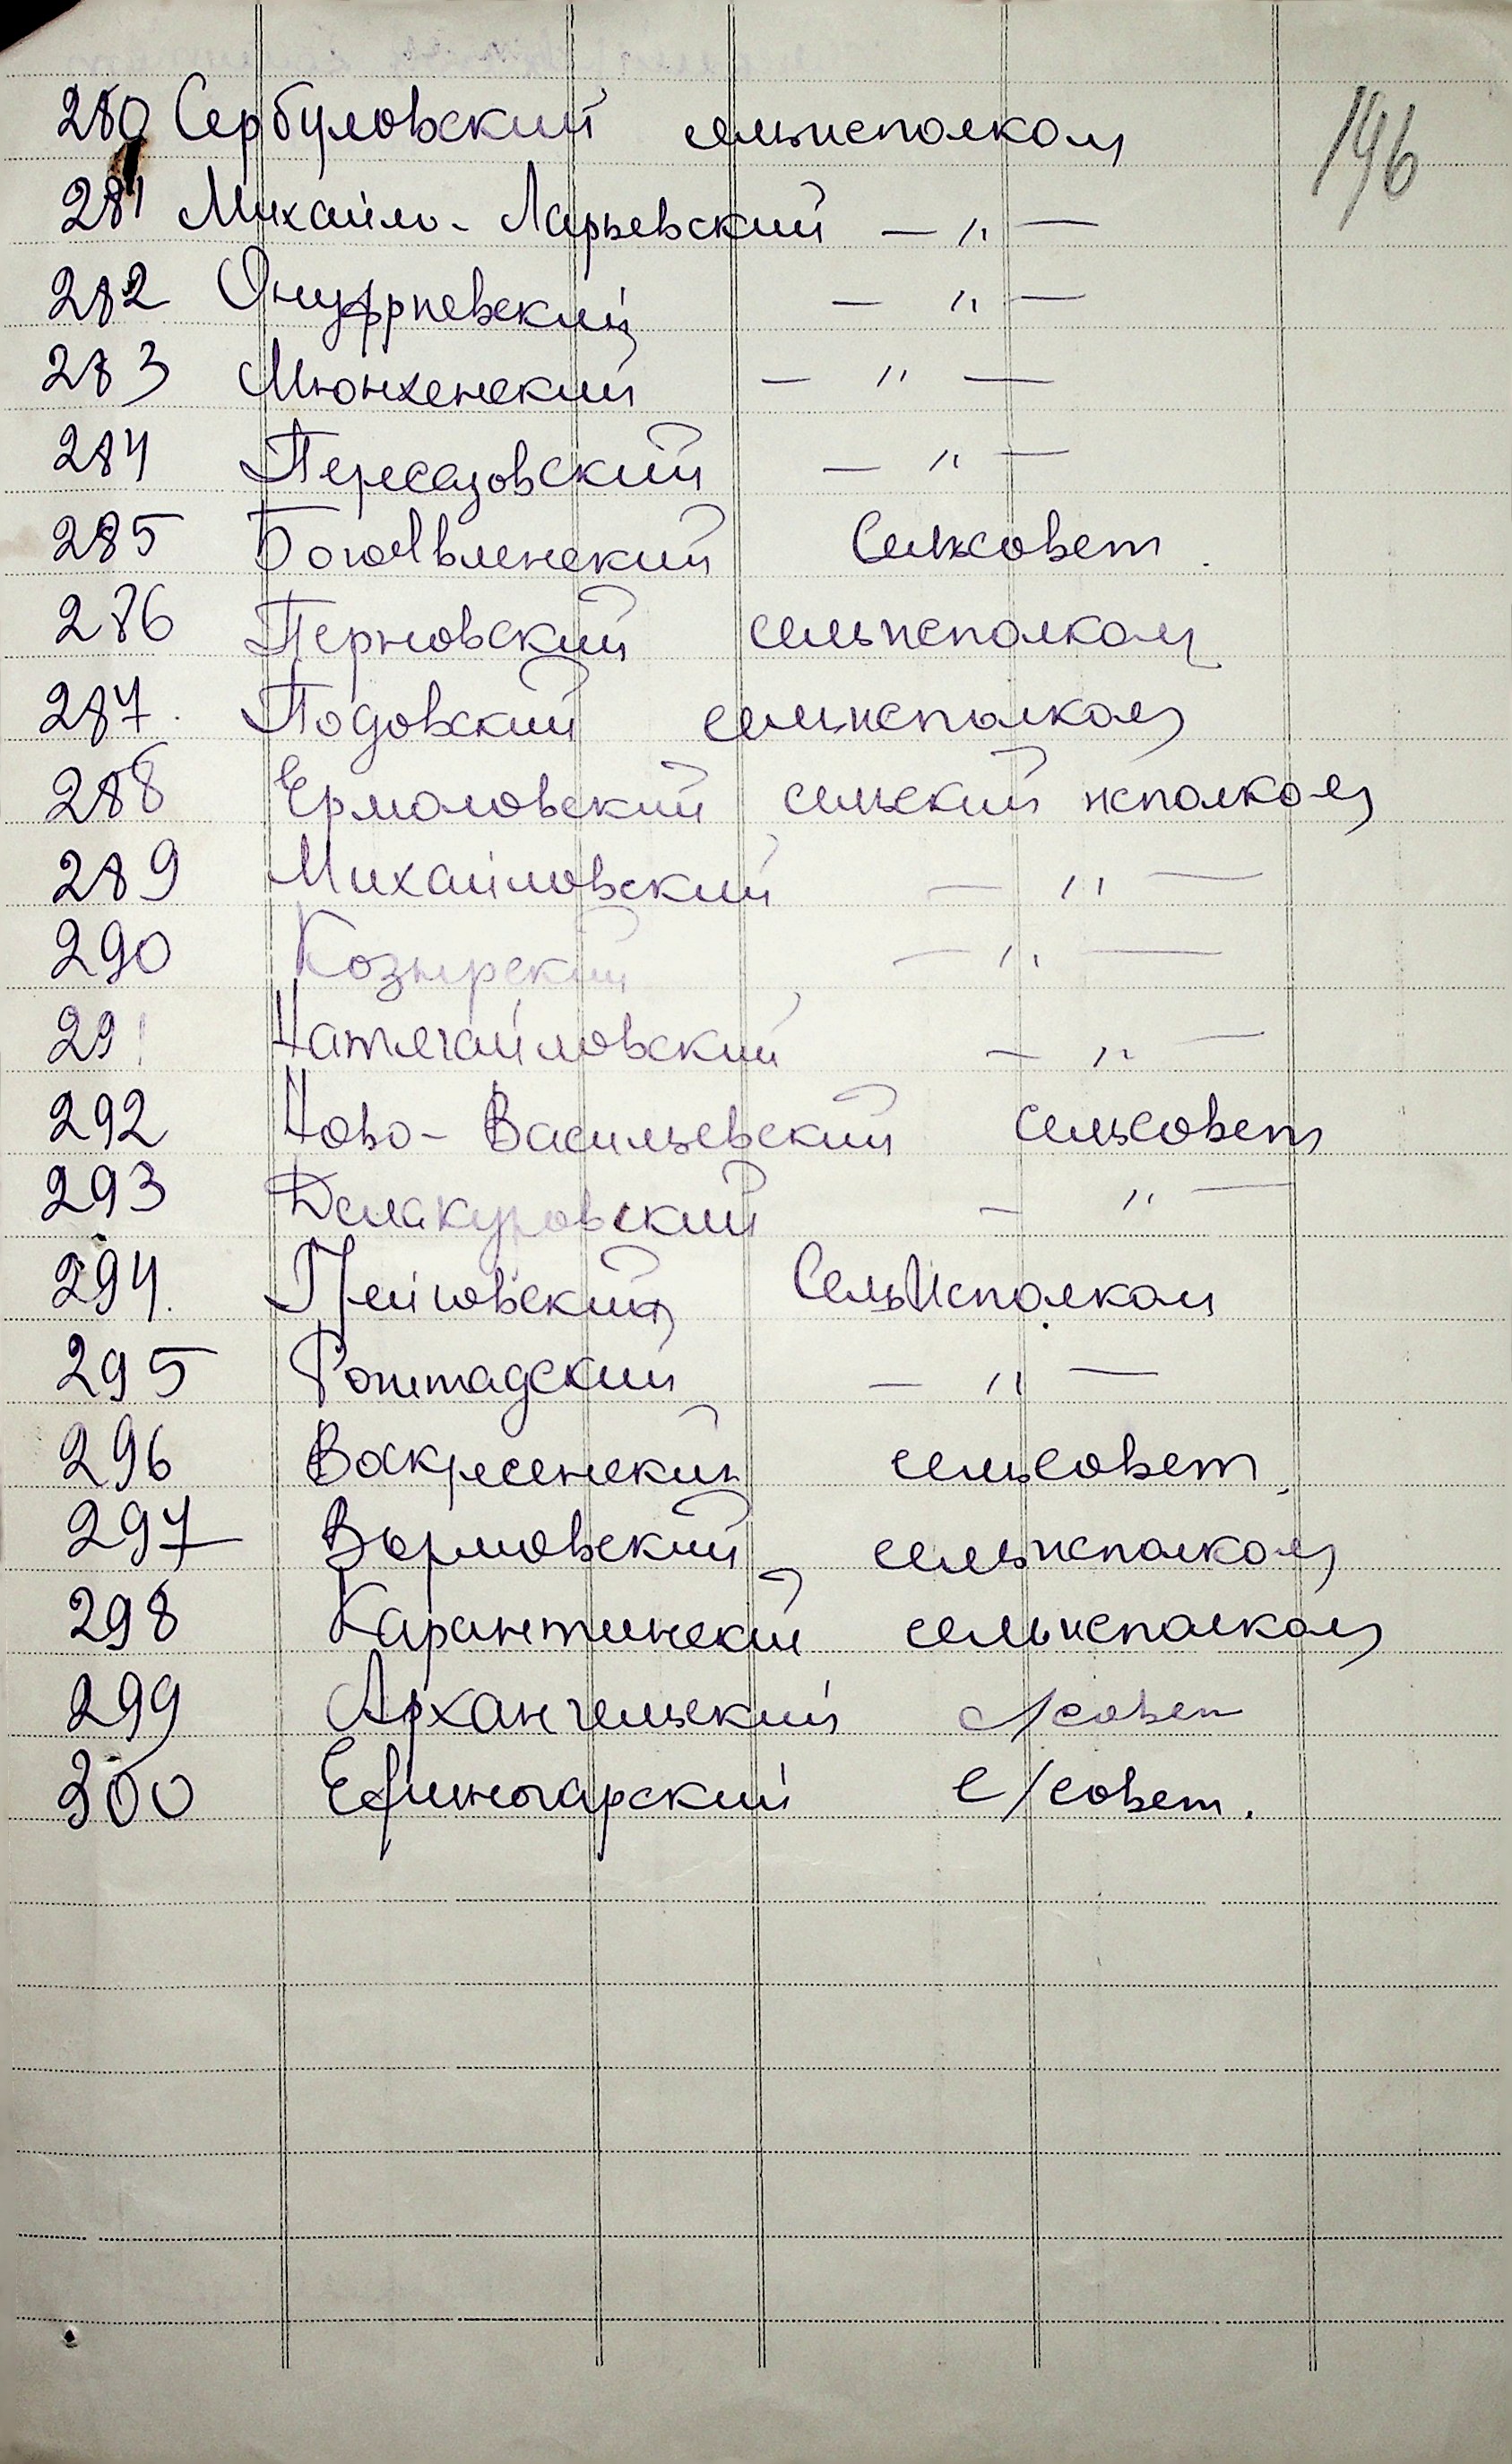 196
280 Сербуловский сельисполком
281 Михайло-Ларьевский — " —
282 Онуфриевский — " —
283 Мюнхенский — " —
284 Пересадовский — " —
285 Богоявленский Сельсовет.
286 Терновский сельисполком
287. Подовский сельисполком
288 Ермоловский сельский исполком
289 Михайловский — " —
290 Козырский — " —
291 Катлягайловский — " —
292 Ново-Васильевский сельсовет
293 Делакуровский — " —
294. Пейговский СельИсполком
295 Роштадский — " —
296 Воскресенский сельсовет
297 Вормовский сельисполком
298 Карантинский сельисполком
299 Архангельский с/совет
300 Ефингарский с/совет.